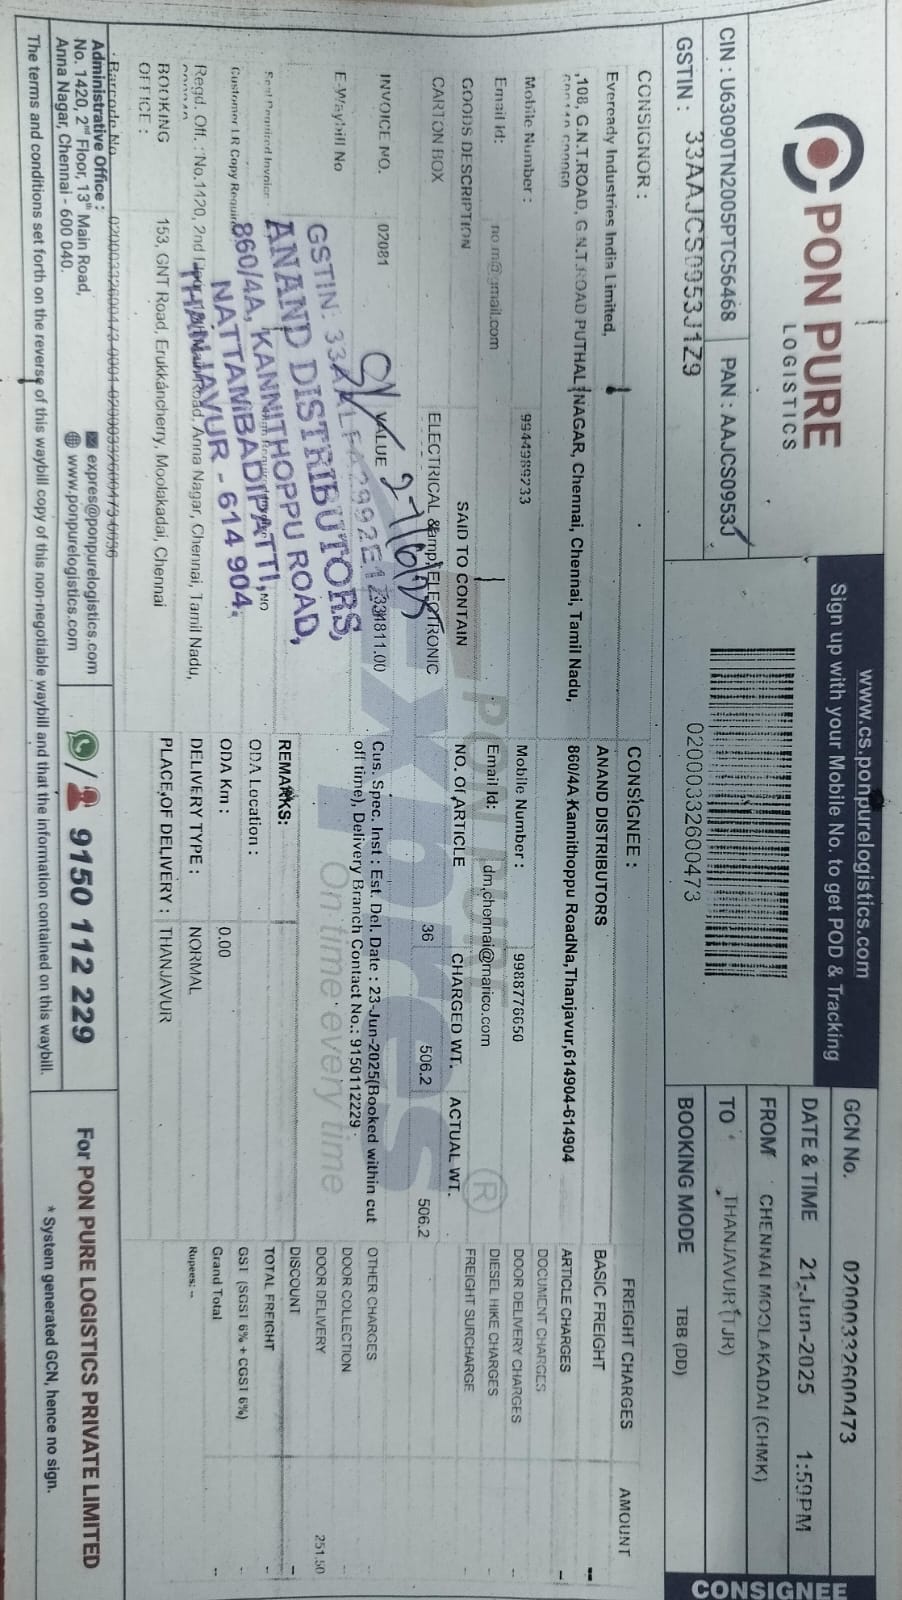 PON PURE
LOGISTICS
CIN : U63090TN2005PTC56468 PAN : AAJCS0953J
GSTIN : 33AAJCS0953J1Z9
www.cs.ponpurelogistics.com
Sign up with your Mobile No. to get POD & Tracking
02000332600473
GCN No. 02000332600473
DATE & TIME 21-Jun-2025 1:59PM
FROM CHENNAI MOOLAKADAI (CHMK)
TO THANJAVUR (TJR)
BOOKING MODE TBB (DD)
CONSIGNEE
CONSIGNOR :
Eveready Industries India Limited,
,108, G.N.T.ROAD, G.N.T.ROAD PUTHALI NAGAR, Chennai, Chennai, Tamil Nadu,
Mobile Number : 9944989733
Email Id:
CONSIGNEE :
ANAND DISTRIBUTORS
860/4A Kannithoppu RoadNa,Thanjavur,614904-614904
Mobile Number : 9988776650
Email Id: dm.chennai@marico.com
GOODS DESCRIPTION SAID TO CONTAIN NO. Of ARTICLE CHARGED WT. ACTUAL WT.
CARTON BOX ELECTRICAL &amp; ELECTRONIC 36 506.2 506.2
INVOICE NO. 02081 VALUE 334811.00
E-Waybill No
Customer LR Copy Required
Regd. Off. : No.1420, 2nd Floor, 13th Main Road, Anna Nagar, Chennai, Tamil Nadu,
BOOKING OFFICE : 153, GNT Road, Erukkancherry, Moolakadai, Chennai
GSTIN: 33
ANAND DISTRIBUTORS,
860/4A, KANNITHOPPU ROAD,
NATTAMBADIPATTI,
THANJAVUR - 614 904.
27/6/25
PON PURE
Expres
On time every time
®
Cus. Spec. Inst : Est. Del. Date : 23-Jun-2025(Booked within cut
off time), Delivery Branch Contact No.: 9150112229
REMARKS:
ODA Location :
ODA Km : 0.00
DELIVERY TYPE : NORMAL
PLACE OF DELIVERY : THANJAVUR
FREIGHT CHARGES AMOUNT
BASIC FREIGHT --
ARTICLE CHARGES -
DOCUMENT CHARGES
DOOR DELIVERY CHARGES -
DIESEL HIKE CHARGES -
FREIGHT SURCHARGE -
OTHER CHARGES -
DOOR COLLECTION -
DOOR DELIVERY 251.50
DISCOUNT --
TOTAL FREIGHT -
GST (SGST 6% + CGST 6%) -
Grand Total --
Rupees: --
Barcode No 02000332600473-0001-02000332600473-0036
Administrative Office :
No. 1420, 2nd Floor, 13th Main Road,
Anna Nagar, Chennai - 600 040.
expres@ponpurelogistics.com
www.ponpurelogistics.com
/ 9150 112 229
For PON PURE LOGISTICS PRIVATE LIMITED
* System generated GCN, hence no sign.
The terms and conditions set forth on the reverse of this waybill copy of this non-negotiable waybill and that the information contained on this waybill.